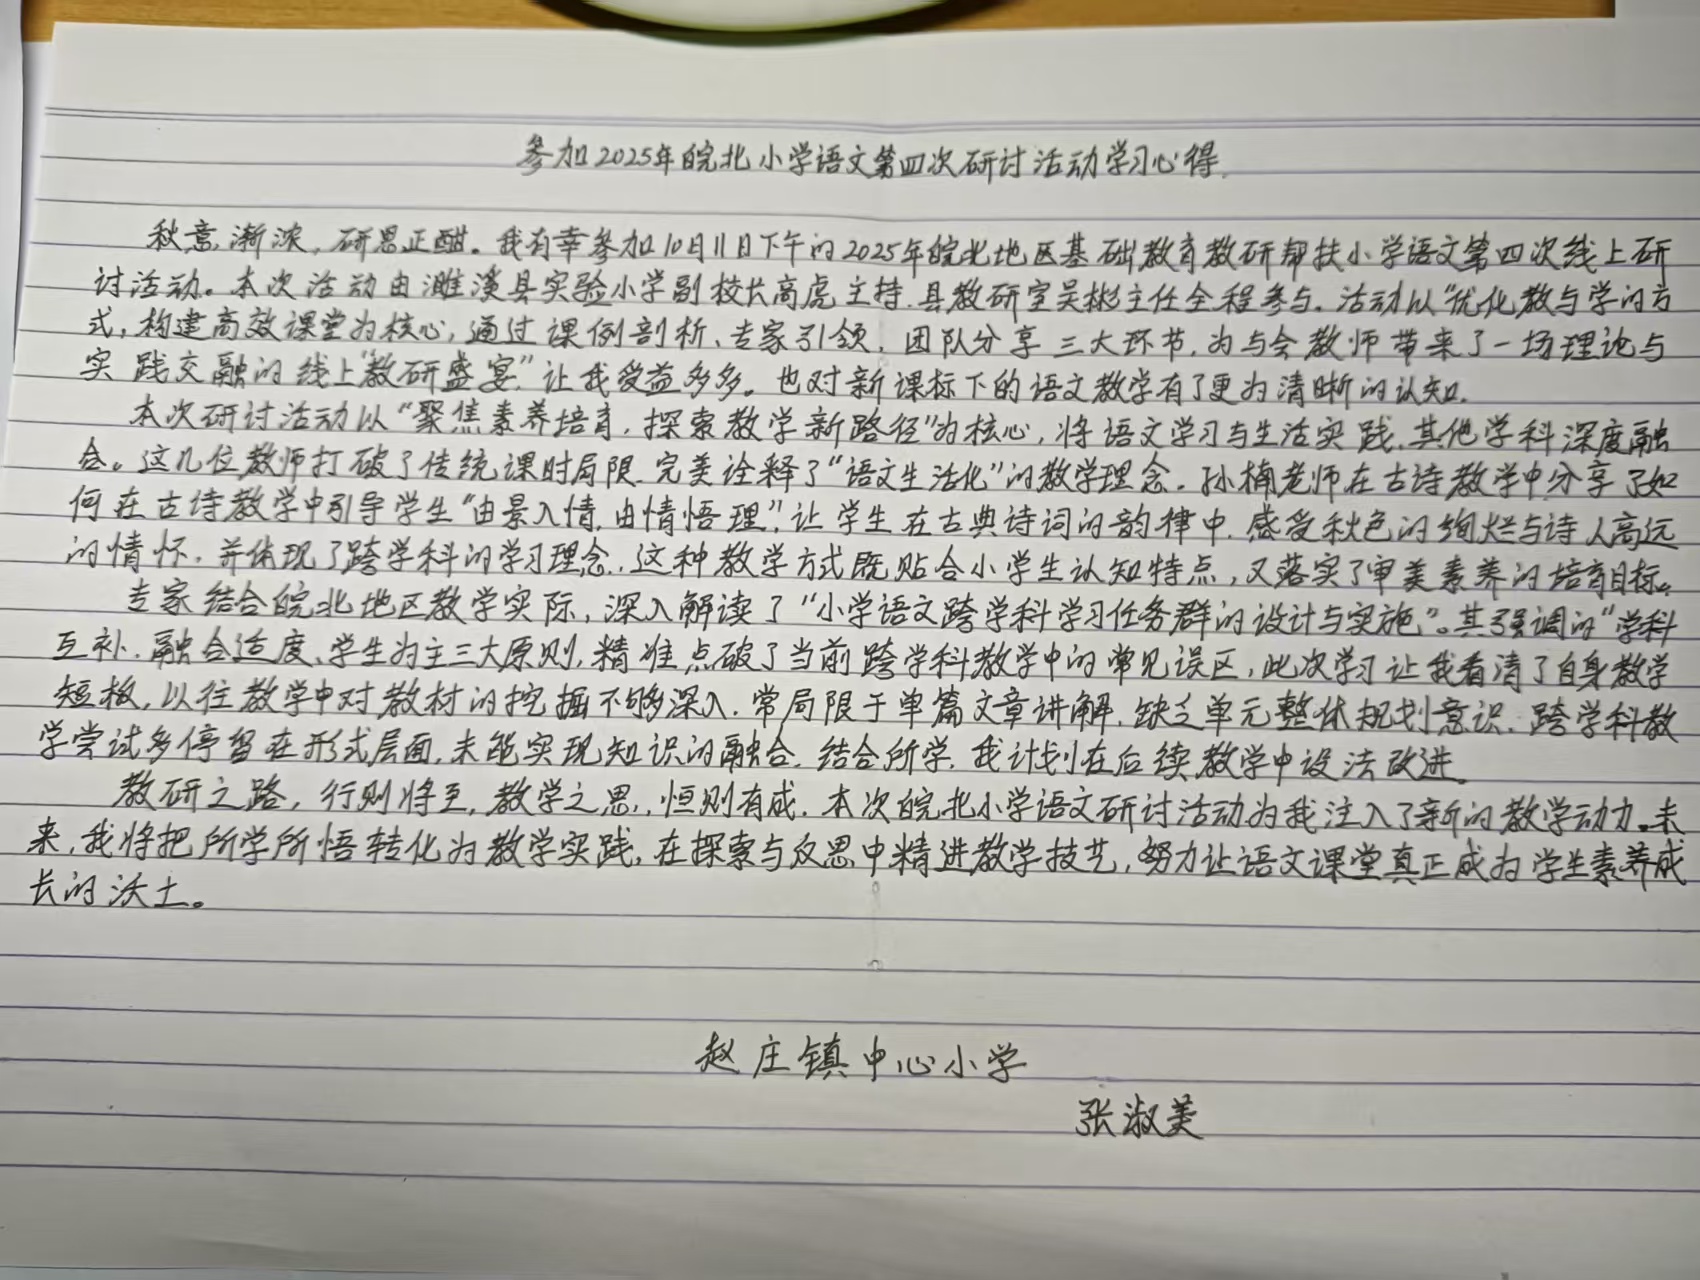 参加2025年皖北小学语文第四次研讨活动学习心得.
秋意渐浓，研思正酣。我有幸参加10月11日下午的2025年皖北地区基础教育教研帮扶小学语文第四次线上研
讨活动。本次活动由濉溪县实验小学副校长高虎主持.县教研室吴彬主任全程参与。活动以“优化教与学的方
式，构建高效课堂为核心，通过课例剖析、专家引领，团队分享三大环节，为与会教师带来了一场理论与
实践交融的线上“教研盛宴”让我受益多多。也对新课标下的语文教学有了更为清晰的认知.
本次研讨活动以“聚焦素养培育，探索教学新路径”为核心，将语文学习与生活实践、其他学科深度融
合。这几位教师打破了传统课时局限.完美诠释了“语文生活化”的教学理念。孙楠老师在古诗教学中分享了如
何在古诗教学中引导学生“由景入情，由情悟理”，让学生在古典诗词的韵律中，感受秋色的绚烂与诗人高远
的情怀，并体现了跨学科的学习理念，这种教学方式既贴合小学生认知特点，又落实了审美素养的培育目标。
专家结合皖北地区教学实际，深入解读了“小学语文跨学科学习任务群的设计与实施”。其强调的“学科
互补、融合适度、学生为主三大原则，精准点破了当前跨学科教学中的常见误区，此次学习让我看清了自身教学
短板，以往教学中对教材的挖掘不够深入，常局限于单篇文章讲解，缺乏单元整体规划意识，跨学科教
学尝试多停留在形式层面，未能实现知识的融合，结合所学，我计划在后续教学中设法改进。
教研之路，行则将至，教学之思，恒则有成，本次皖北小学语文研讨活动为我注入了新的教学动力。未
来，我将把所学所悟转化为教学实践，在探索与反思中精进教学技艺，努力让语文课堂真正成为学生素养成
长的沃土。
赵庄镇中心小学
张淑美